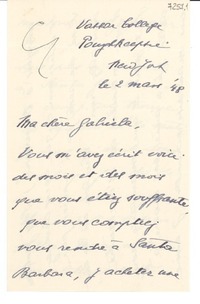 7255.1
Vassar College
Poughkeepsie.
New York
le 2 mars '48
Ma chère Gabriela,
Vous m'avez écrit voici
des mois et des mois
que vous étiez souffrante,
que vous comptiez
vous rendre à Santa
Barbara, y acheter une